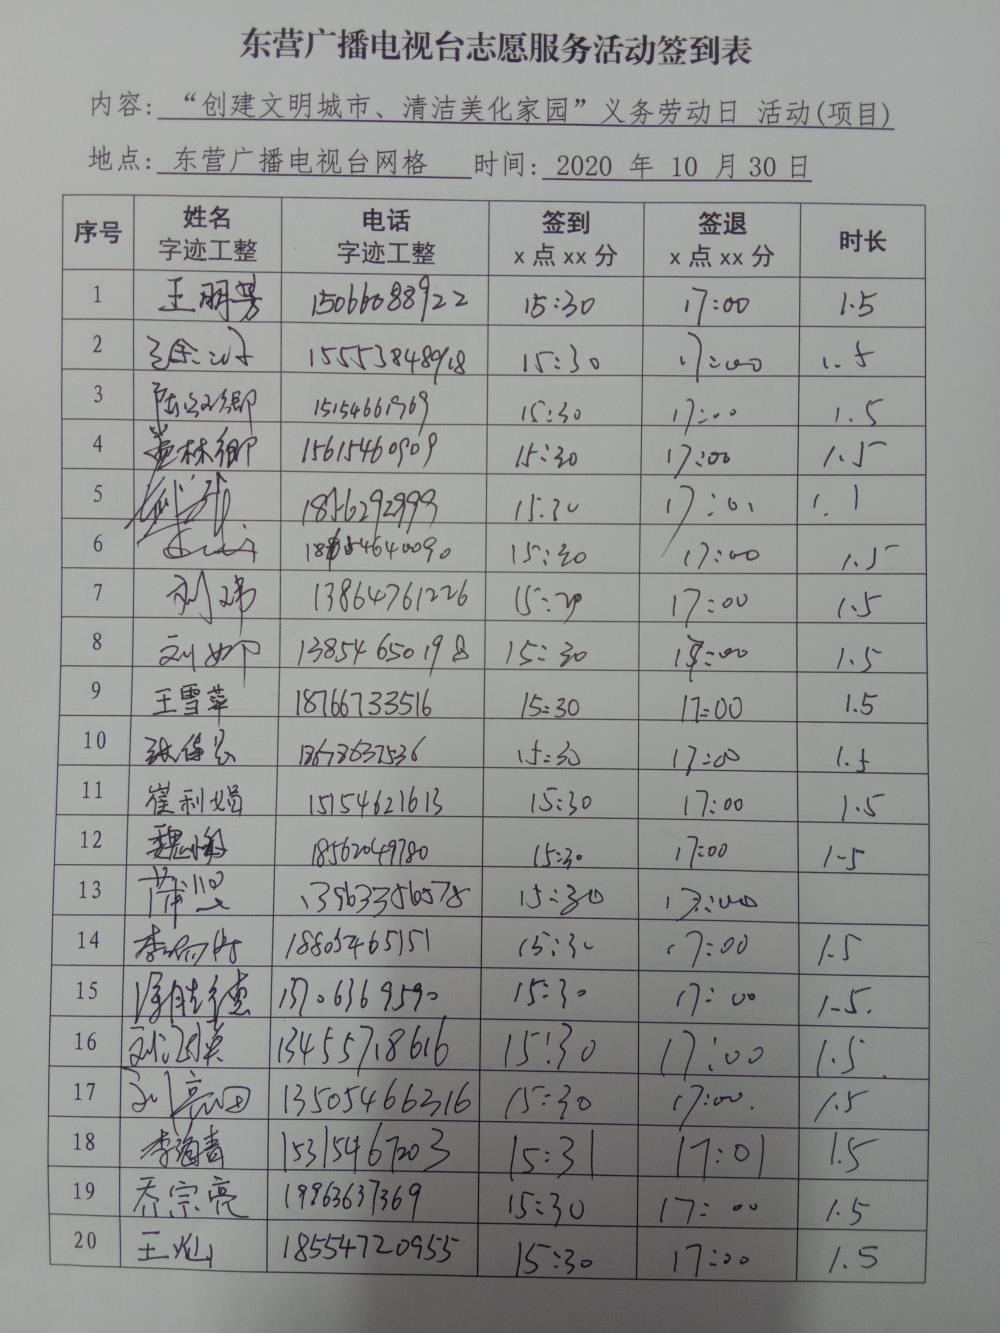 东营广播电视台志愿服务活动签到表
内容: “创建文明城市、清洁美化家园”义务劳动日 活动(项目)
地点: 东营广播电视台网格 时间: 2020 年 10 月 30 日
序号 姓名 字迹工整 电话 字迹工整 签到 x 点 xx 分 签退 x 点 xx 分 时长
1 王明芳 15066088922 15:30 17:00 1.5
2 15553848918 15:30 17:00 1.5
3 15154661969 15:30 17:00 1.5
4 董林卿 15615460909 15:30 17:00 1.5
5 15:30
6 15:30 17:00 1.5
7 刘玮 13864761226 17:00 1.5
8 刘如 13854650198 15:30 1.5
9 王雪苹 18766733516 15:30 17:00 1.5
10 18678637536 15:30 17:00 1.5
11 崔利娟 15154621613 15:30 17:00 1.5
12 魏 18562049780 15:30 17:00 1-5
13 13963356578 15:30 17:00
14 18805465151 15:30 17:00 1.5
15 13706369590 15:30 17:00 1-5.
16 13455718616 15:30 17:00 1.5
17 13505466316 15:30 17:00 1.5
18 李海青 15315467203 15:31 17:01 1.5
19 乔宗亮 19963637369 15:30 17:00 1.5
20 王灿 18554720955 15:30 17:00 1.5